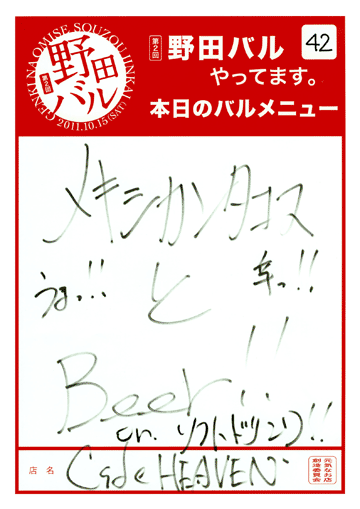 GENKI NA OMISE SOUZOU IINKAI
第2回
野田
バル
2011.10.15(SAT)
第2回 野田バル 42
やってます。
本日のバルメニュー
メキシカンタコス
うまっ!! と 辛っ!!
Beer!!
or. ソフトドリンク!!
店名 Cafe HEAVEN
元気なお店
創造委員会